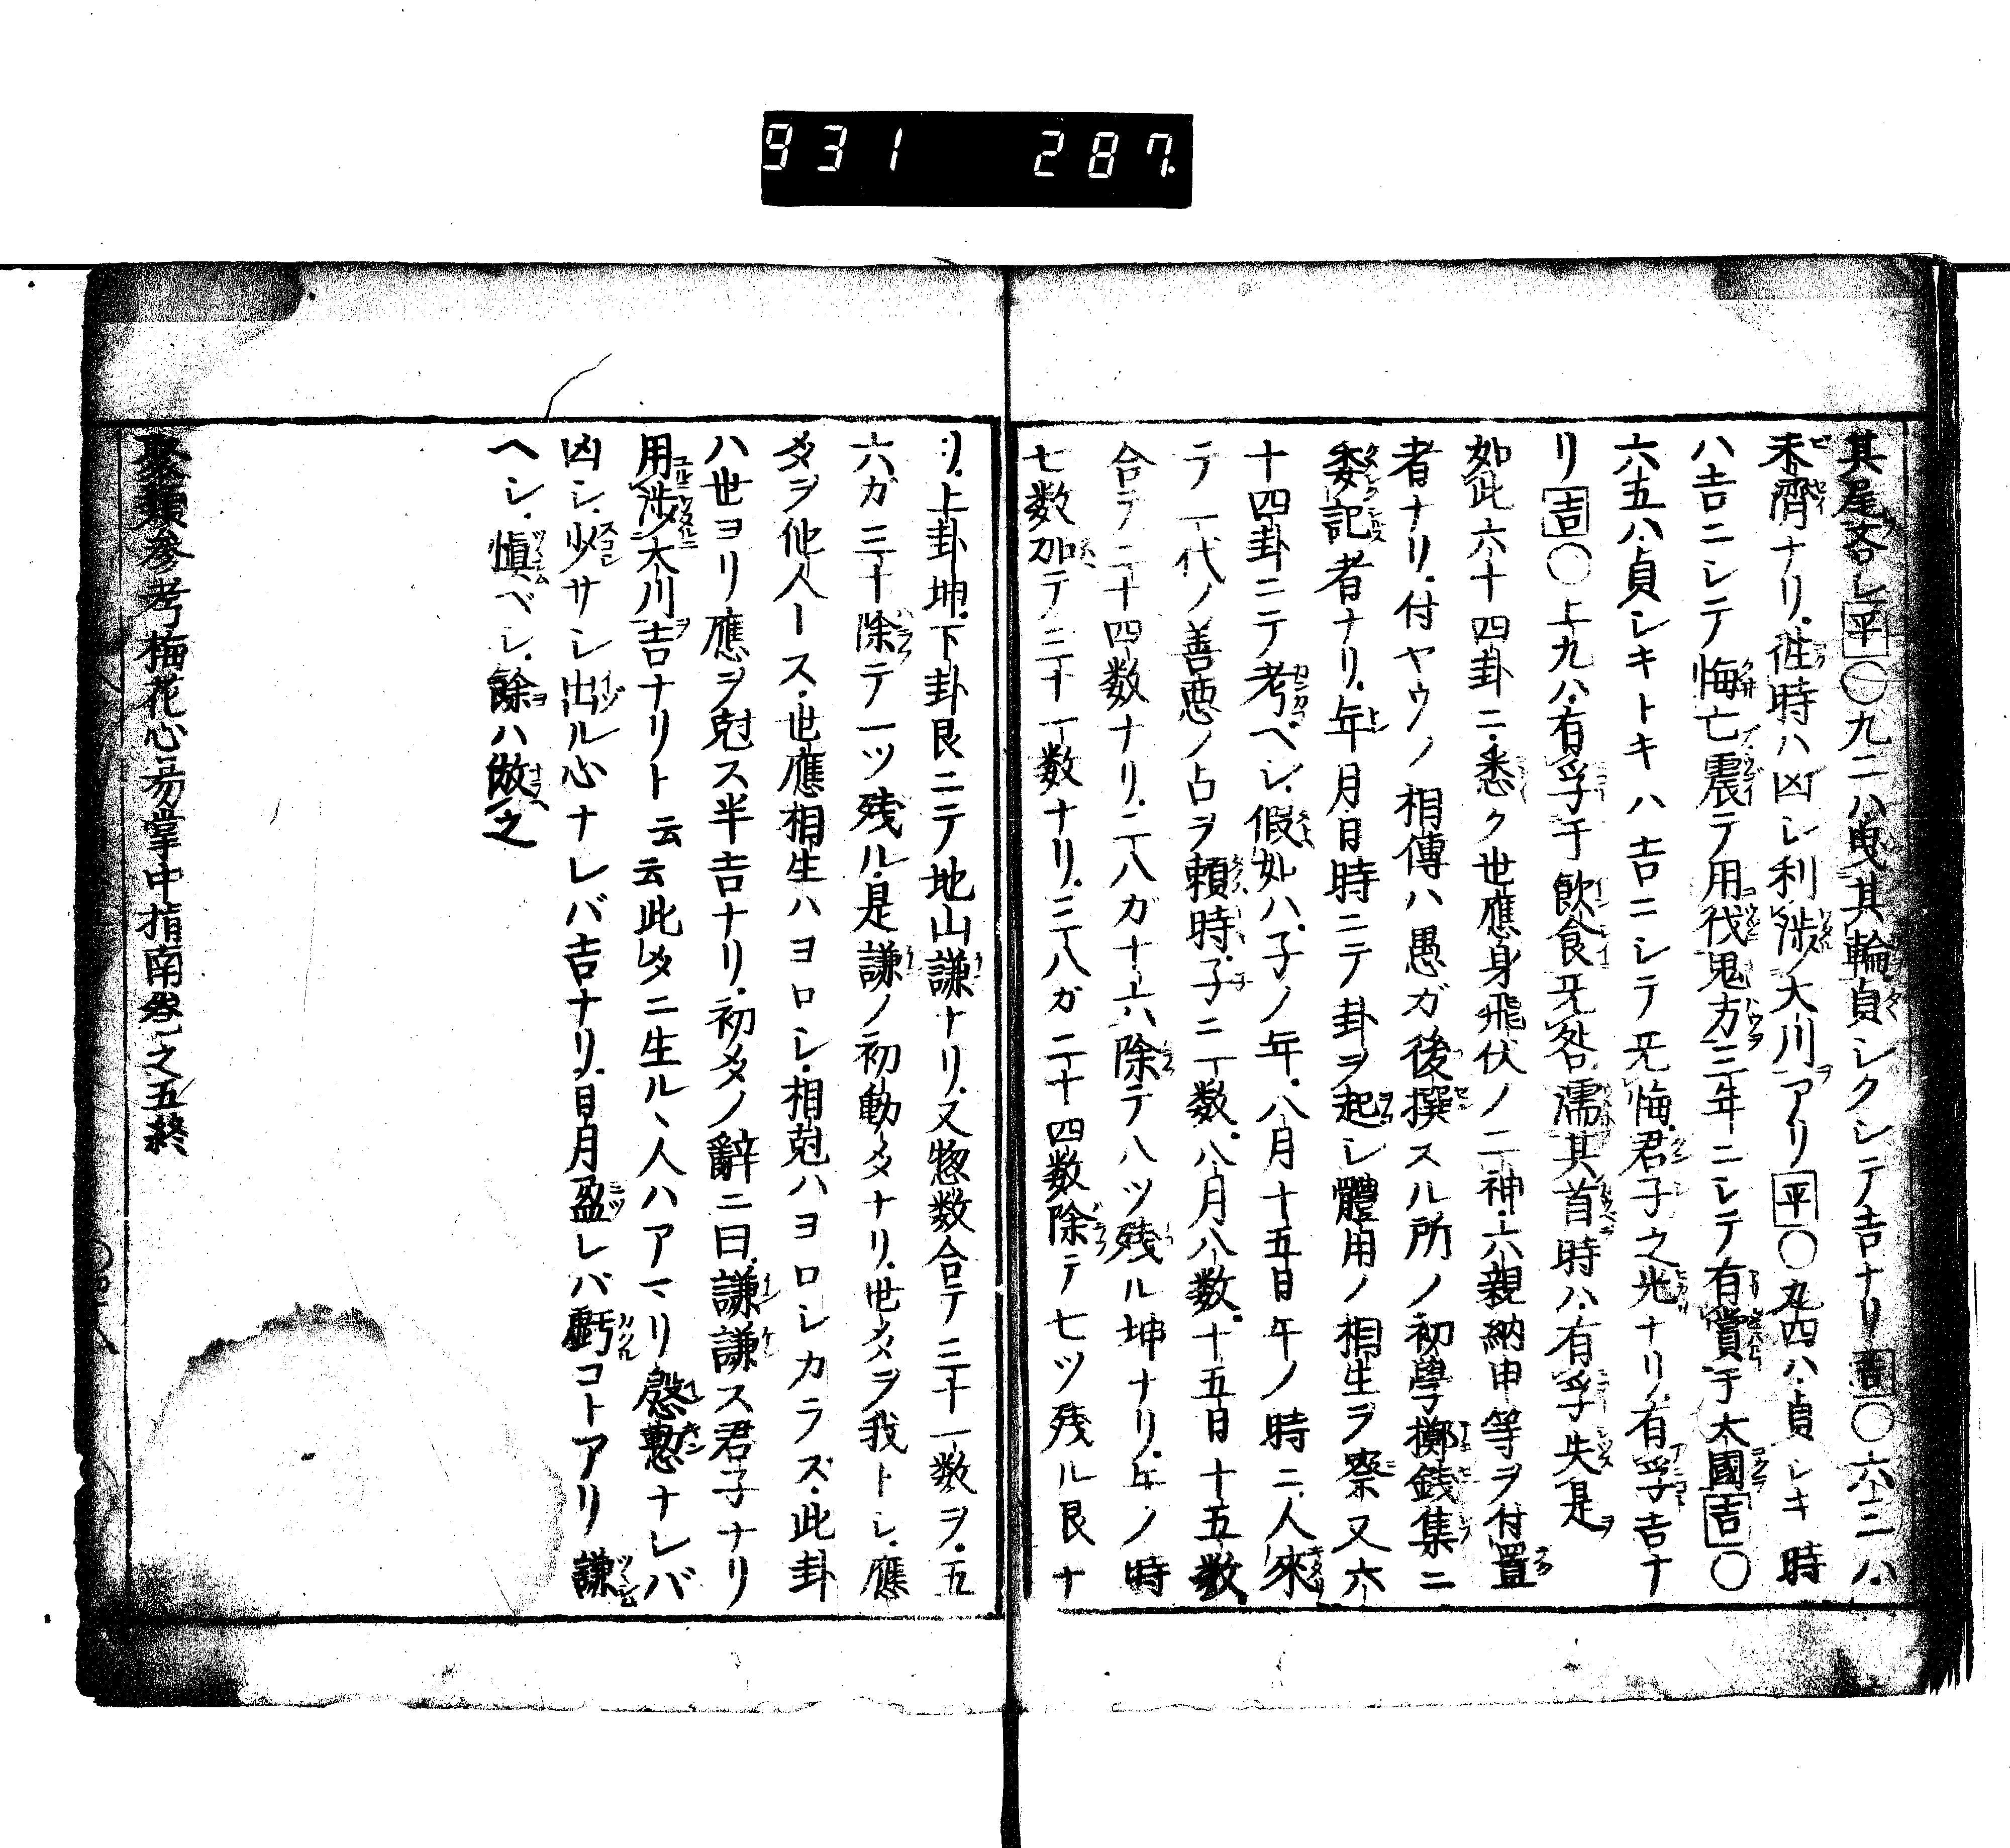 931 287
其尾吝レ平〇九二ハ曳其輪貞シクシテ吉ナリ吉〇六三ハ
未濟ナリ往時ハ凶レ利涉大川アリ平〇九四ハ貞シキ時
ハ吉ニシテ悔亡震テ用伐鬼方三年ニシテ有賞于大國吉〇
六五ハ貞シキトキハ吉ニシテ无悔君子之光ナリ有孚吉ナ
リ吉〇上九ハ有孚于飲食无咎濡其首時ハ有孚失是
如此六十四卦ニ悉ク世應身飛伏ノ二神六親納甲等ヲ付置
者ナリ付ヤウノ相傳ハ愚ガ後撰スル所ノ初學擲銭集ニ
委記者ナリ年月日時ニテ卦ヲ起シ體用ノ相生ヲ察又六
十四卦ニテ考ベシ假如ハ子ノ年八月十五日午ノ時ニ人來
テ一代ノ善悪ノ占ヲ頼時子ニ一数八月八数十五日十五数
合テ二十四数ナリ二八ガ十六除テ八ツ残ル坤ナリ午ノ時
七数加テ三十一数ナリ三八ガ二十四数除テ七ツ残ル艮ナ
リ上卦坤下卦艮ニテ地山謙ナリ又惣数合テ三十一数ヲ五
六ガ三十除テ一ツ残ル是謙ノ初動爻ナリ世爻ヲ我トシ應
爻ヲ他人トス世應相生ハヨロシ相尅ハヨロシカラズ此卦
ハ世ヨリ應ヲ尅ス半吉ナリ初爻ノ辭ニ曰謙謙ス君子ナリ
用涉大川吉ナリト云云此爻ニ生ルヽ人ハアマリ慇懃ナレバ
凶シ少サシ出ル心ナレバ吉ナリ日月盈レバ虧コトアリ謙
ヘシ愼ベシ餘ハ倣之
聚類參考梅花心易掌中指南巻之五終